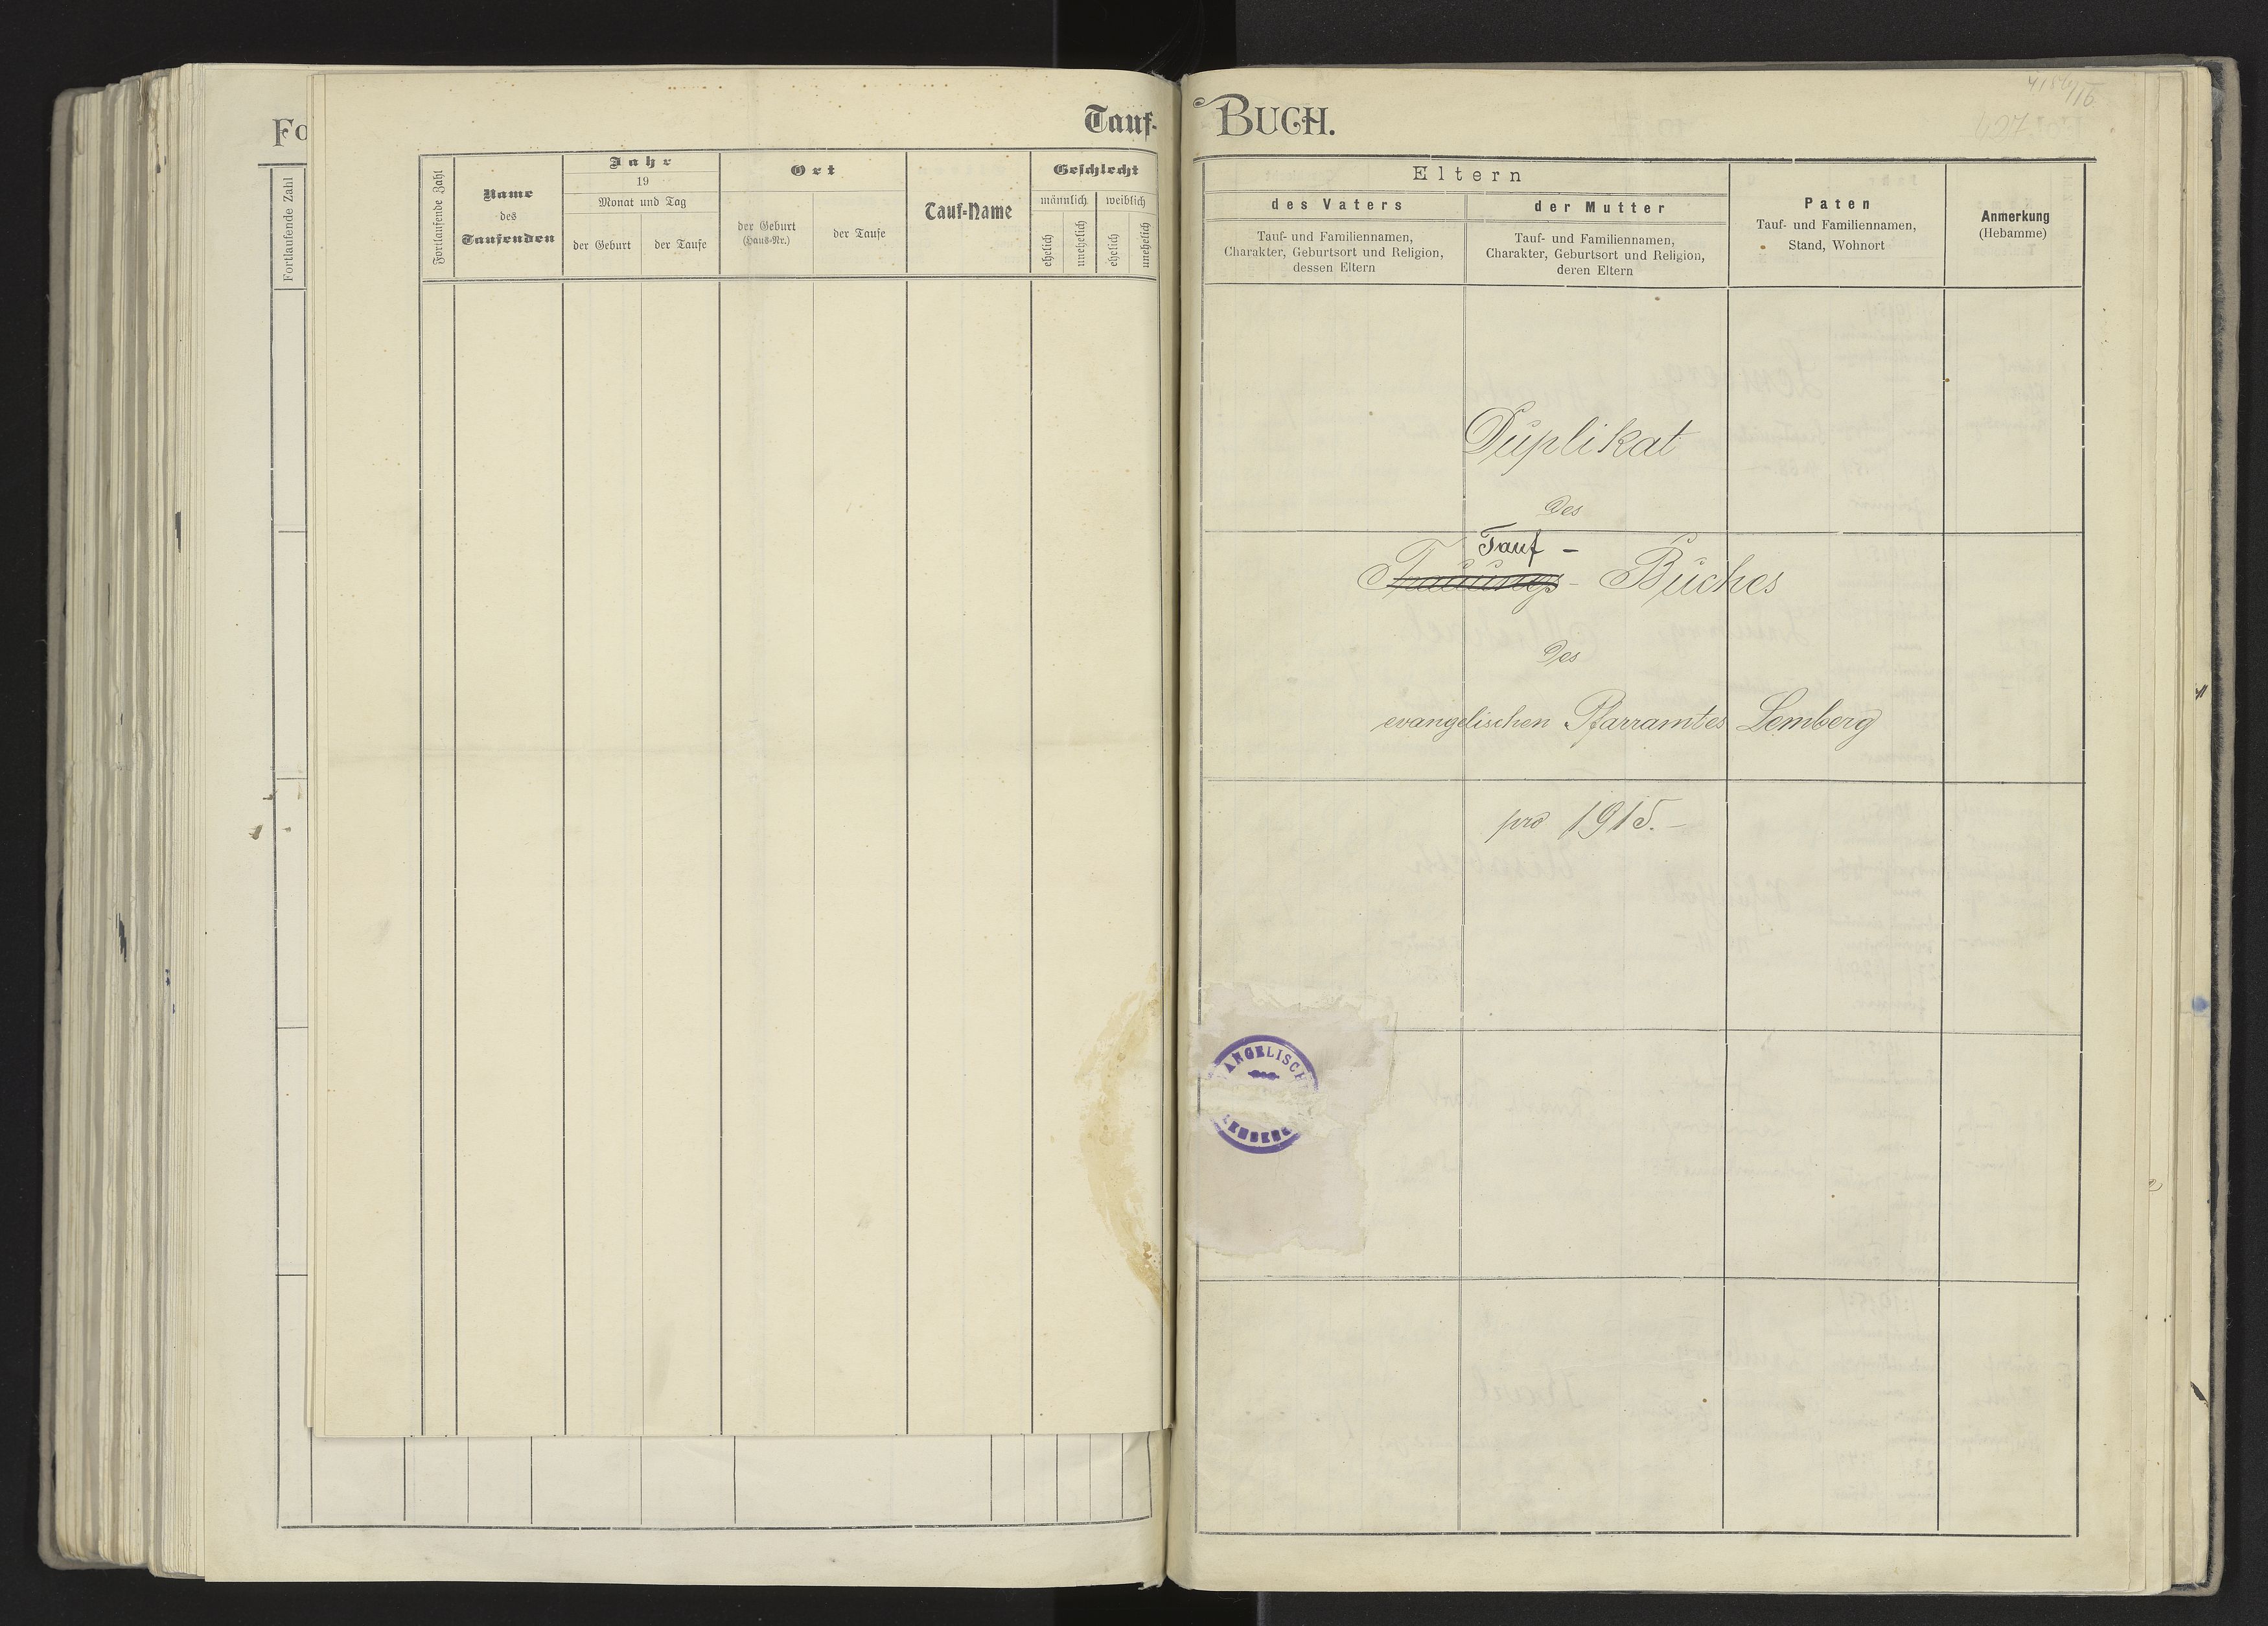 Fo
Fortlaufende Zahl
Tauf-
Fortlaufende Zahl
Name
des
Taufenden
Jahr
19
Monat und Tag
der Geburt
der Taufe
Ort
der Geburt
(Haus-Nr.)
der Taufe
Tauf-Name
Geschlecht
männlich
weiblich
ehelich
unehelich
ehelich
unehelich
BUCH.
Eltern
des Vaters
Tauf- und Familiennamen,
Charakter, Geburtsort und Religion,
dessen Eltern
der Mutter
Tauf- und Familiennamen,
Charakter, Geburtsort und Religion,
deren Eltern
Paten
Tauf- und Familiennamen,
Stand, Wohnort
Anmerkung
(Hebamme)
Duplikat
des
Tauf -
Trauungs - Buches
des
evangelischen Pfarramtes Lemberg
pro 1915.-
ANGELISCH
LEMBERG